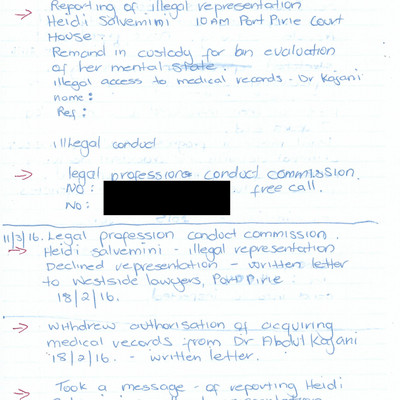 Reporting of illegal representation
→ Heidi Salvemini 10AM Port Pirie Court
House.
Remand in custody for an evaluation
of her mental state.
illegal access to medical records - Dr Kajani
name:
Ref:
illegal conduct
→ legal professions conduct commission.
No: . free call.
No:
11/3/16. Legal profession conduct commission.
→ Heidi Salvemini - illegal representation
Declined representation - written letter
to Westside lawyers, Port Pirie
18/2/16.
→ withdrew authorisation of acquiring
medical records from Dr Abdul Kajani
18/2/16. - written letter.
→ Took a message - of reporting Heidi